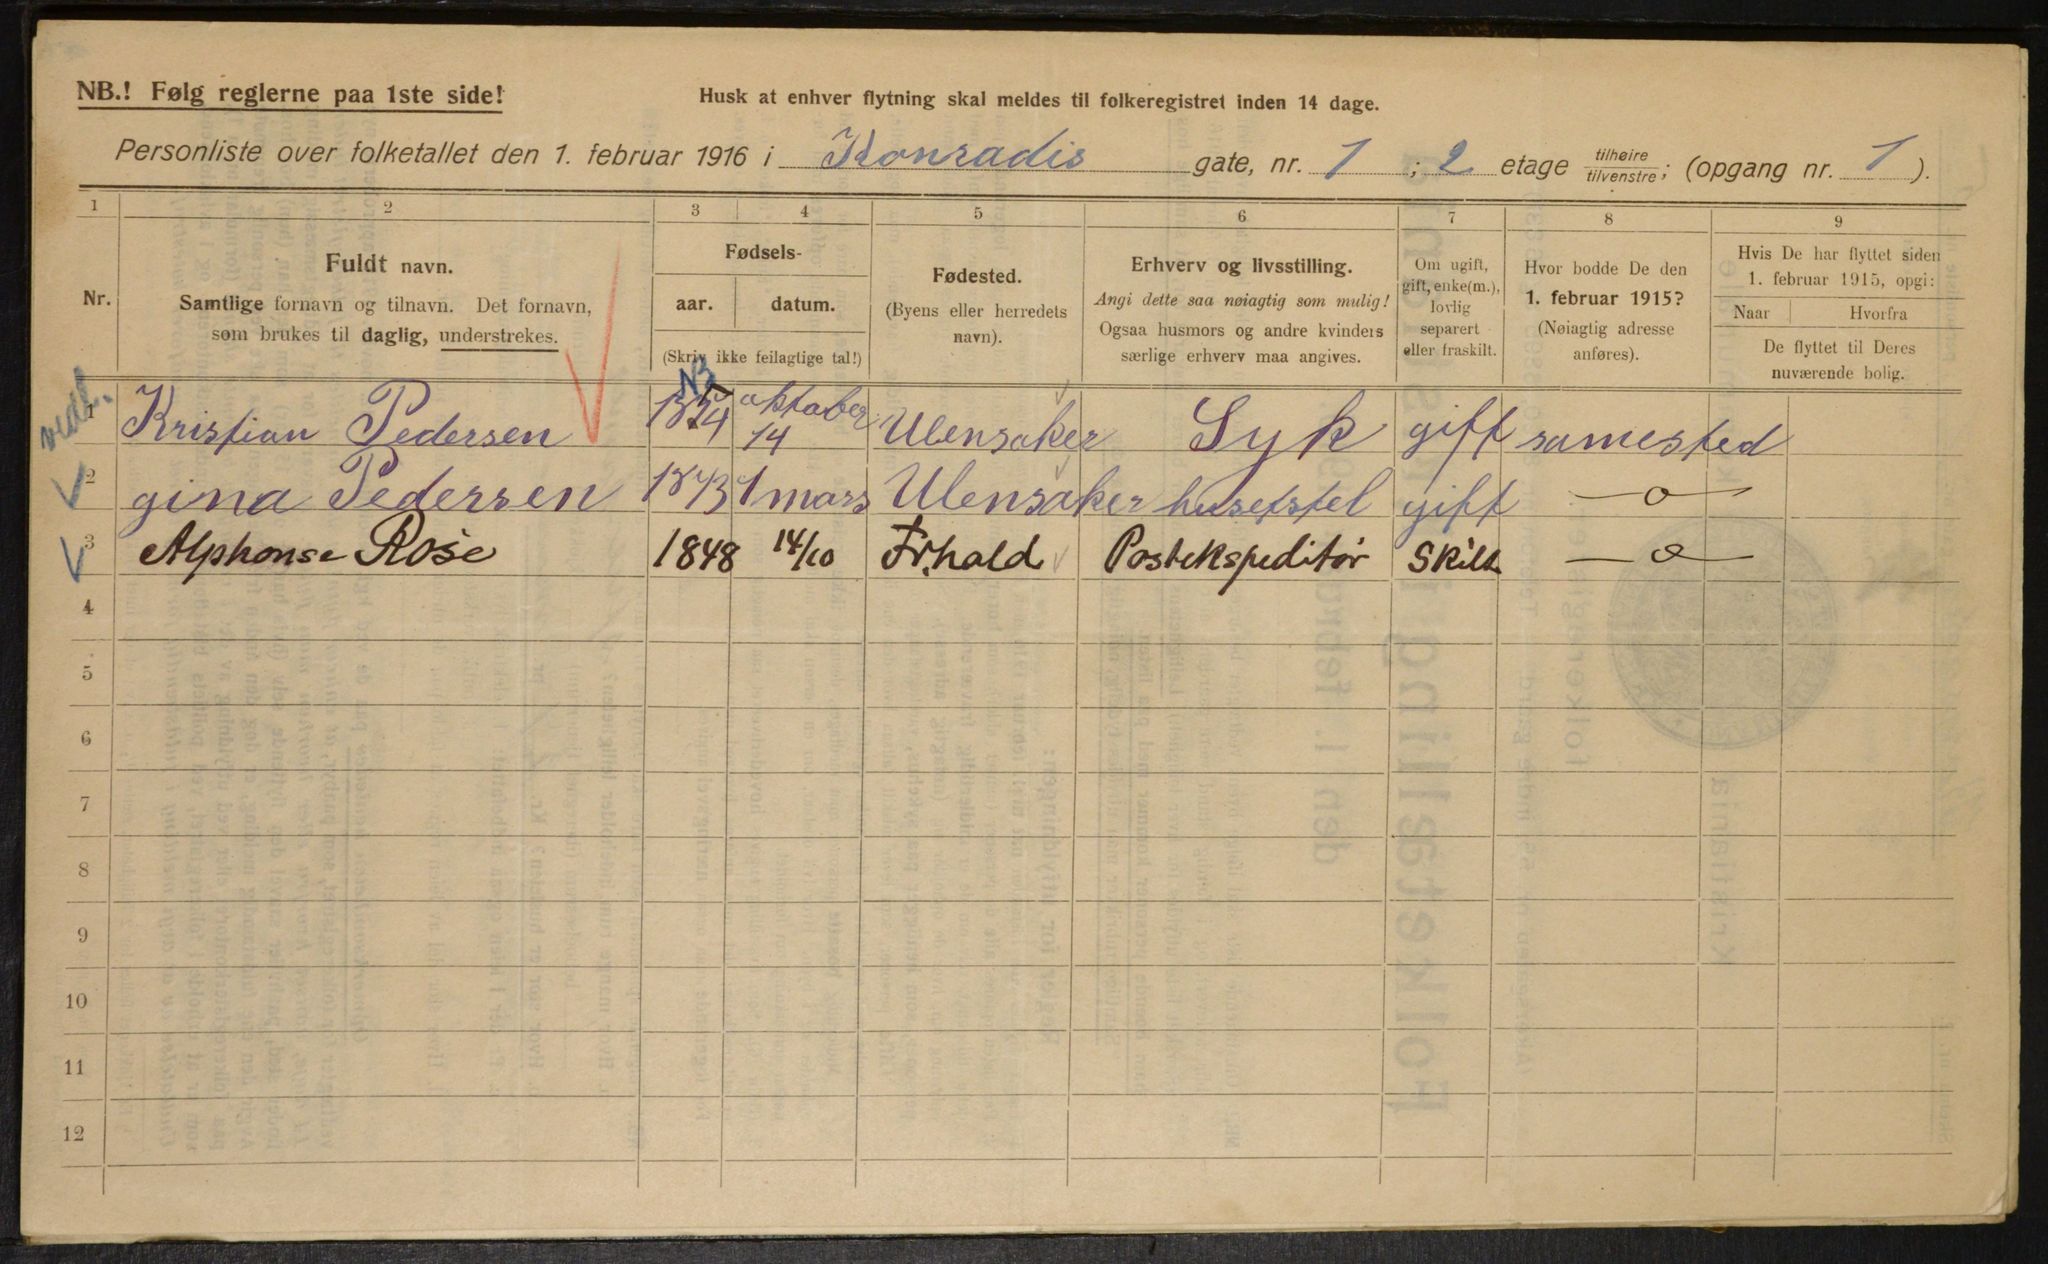 NB.! Følg reglerne paa 1ste side!
Husk at enhver flytning skal meldes til folkeregistret inden 14 dage.
Personliste over folketallet den 1. februar 1916 i Konradis gate, nr. 1 ; 2 etage tilhøire tilvenstre; (opgang nr. 1 ).
1 2 3 4 5 6 7 8 9
Nr.
Fuldt navn.
Samtlige fornavn og tilnavn. Det fornavn,
som brukes til daglig, understrekes.
Fødsels-
aar. datum.
(Skriv ikke feilagtige tal!)
Fødested.
(Byens eller herredets
navn).
Erhverv og livsstilling.
Angi dette saa nøiagtig som mulig!
Ogsaa husmors og andre kvinders
særlige erhverv maa angives.
Om ugift,
gift, enke(m.),
lovlig
separert
eller fraskilt.
Hvor bodde De den
1. februar 1915?
(Nøiagtig adresse
anføres).
Hvis De har flyttet siden
1. februar 1915, opgi:
Naar Hvorfra
De flyttet til Deres
nuværende bolig.
NB
1 Kristian Pedersen oktober 14 Ulensaker Syk gift samested
2 gina Pedersen 1873 1 mars Ulensaker husetstel gift —o—
3 Alphonse Rose 1848 14/10 Fr.hald Postekspeditør Skilt —o—
4
5
6
7
8
9
10
11
12